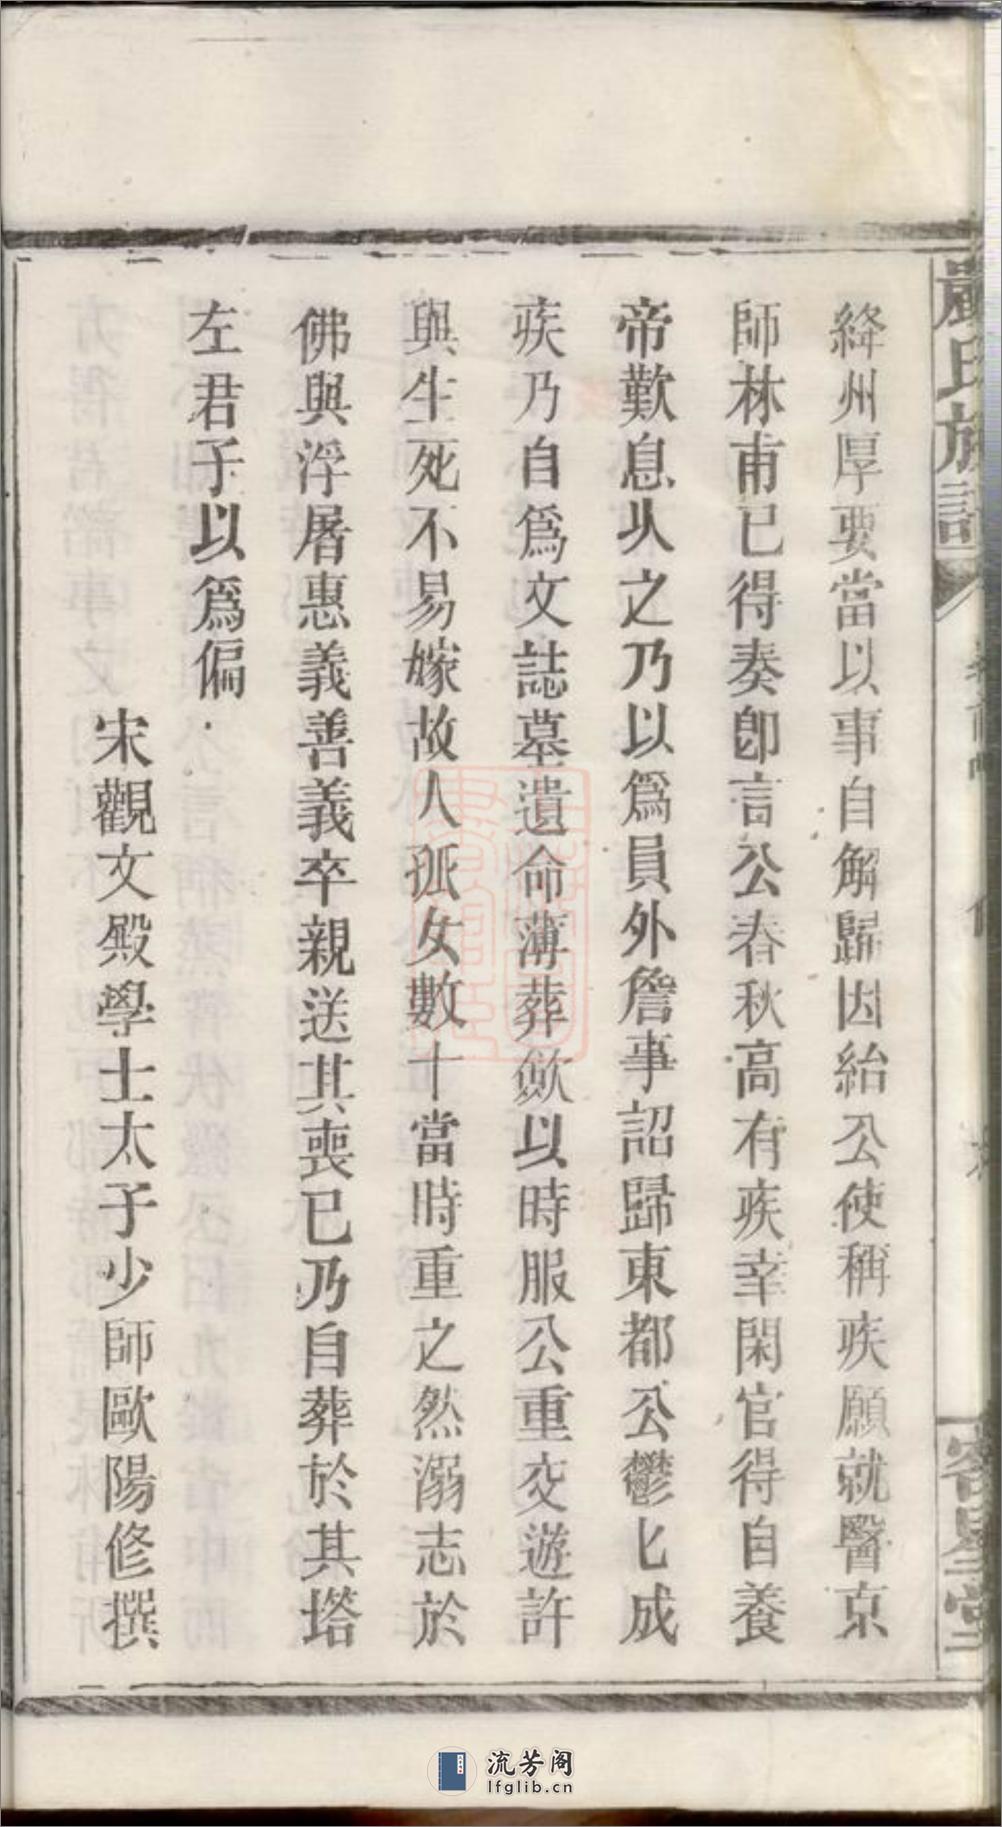 嚴氏族譜
客星堂
絳州厚要當以事自解歸因紿公使稱疾願就醫京
師林甫已得奏卽言公春秋高有疾幸閑官得自養
帝歎息乆之乃以爲員外詹事詔歸東都公鬱匕成
疾乃自爲文誌墓遺命薄葬歛以時服公重交遊許
與生死不易嫁故人孤女數十當時重之然溺志於
佛與浮屠惠義善義卒親送其喪已乃自葬於其塔
左君子以爲偏
宋觀文殿學士太子少師歐陽修撰
流芳阁
lfglib.cn